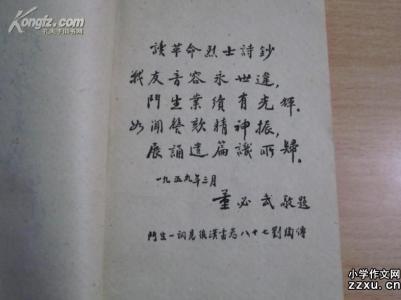 Kongfz.com
孔夫子旧书网
讀革命烈士詩鈔
我友音容永世違，
門生業績有光輝。
如聞謦欬精神振，
展誦遺篇識所歸。
一九五九年三月
董必武敬題
門生一詞見後漢書卷八十七劉陶傳
小学作文网
zzxu.cn